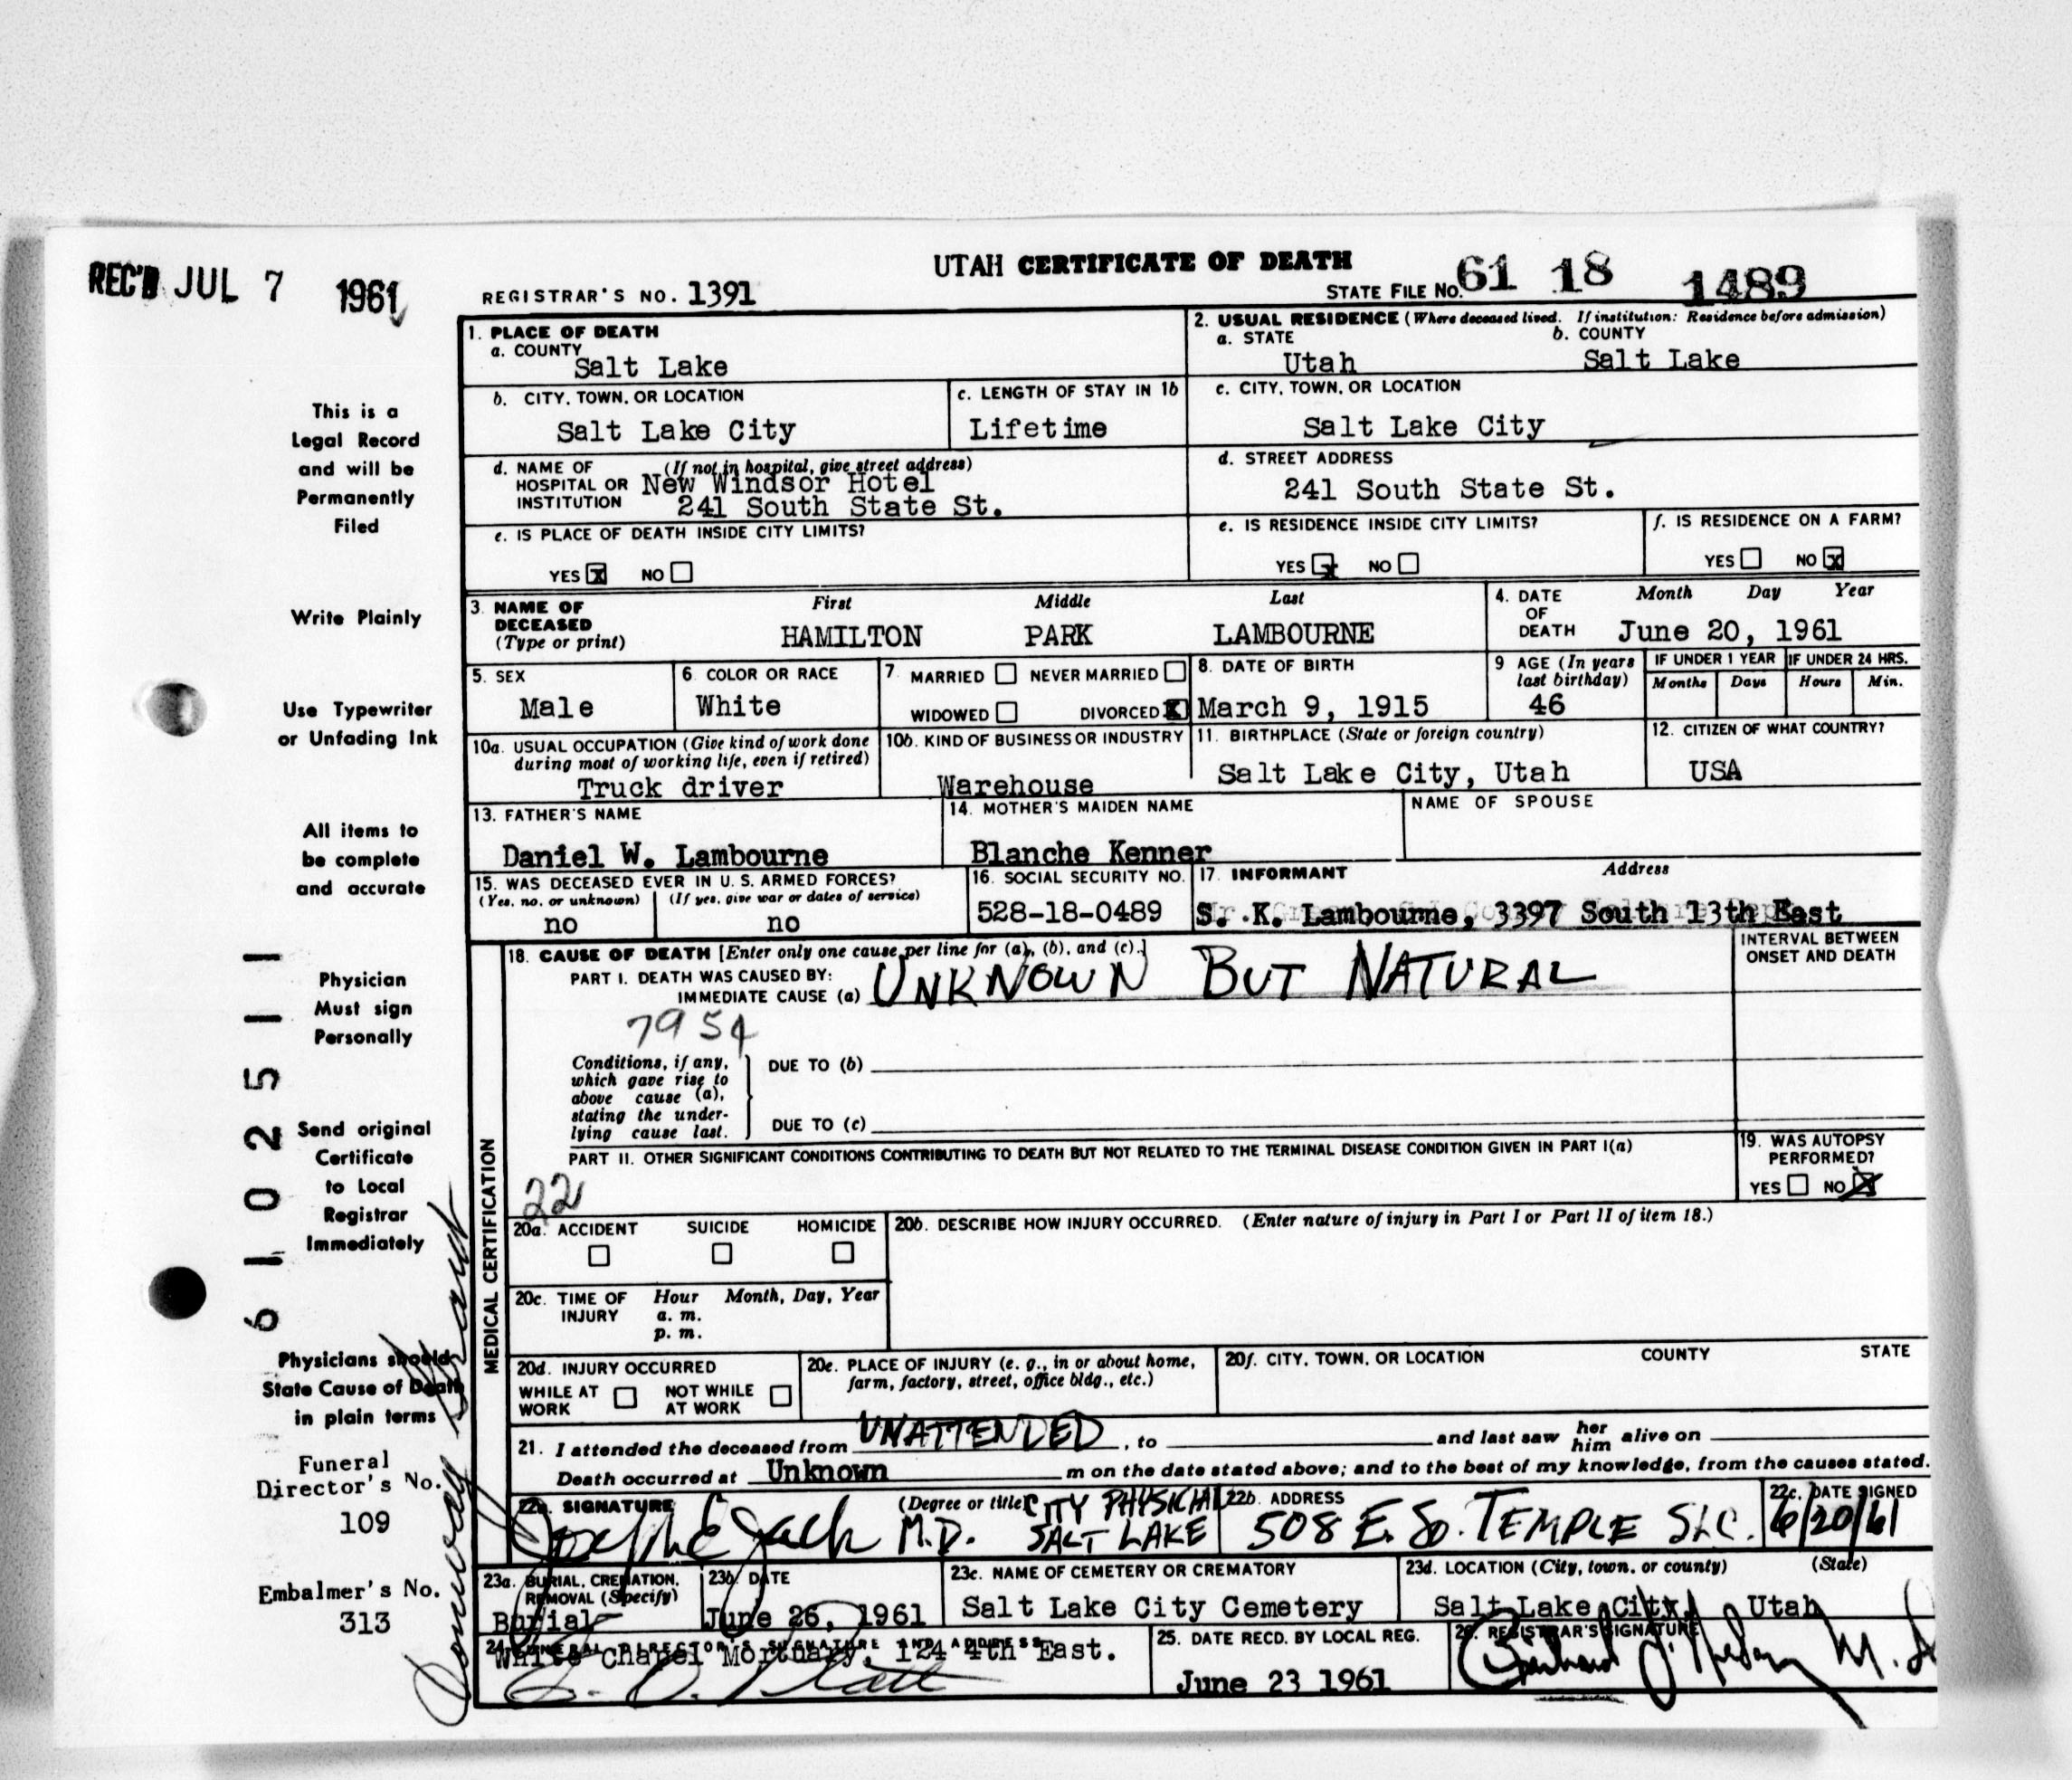 REC'D JUL 7 1961
UTAH CERTIFICATE OF DEATH
REGISTRAR'S NO. 1391
STATE FILE NO. 61 18 1489
1. PLACE OF DEATH
a. COUNTY
Salt Lake
2. USUAL RESIDENCE (Where deceased lived. If institution: Residence before admission)
a. STATE b. COUNTY
Utah Salt Lake
b. CITY, TOWN, OR LOCATION
Salt Lake City
c. LENGTH OF STAY IN 1b
Lifetime
c. CITY, TOWN, OR LOCATION
Salt Lake City
d. NAME OF (If not in hospital, give street address)
HOSPITAL OR New Windsor Hotel
INSTITUTION 241 South State St.
d. STREET ADDRESS
241 South State St.
e. IS PLACE OF DEATH INSIDE CITY LIMITS?
YES X NO
e. IS RESIDENCE INSIDE CITY LIMITS?
YES X NO
f. IS RESIDENCE ON A FARM?
YES NO X
3. NAME OF
DECEASED
(Type or print)
First Middle Last
HAMILTON PARK LAMBOURNE
4. DATE
OF
DEATH
Month Day Year
June 20, 1961
5. SEX
Male
6. COLOR OR RACE
White
7. MARRIED NEVER MARRIED
WIDOWED DIVORCED X
8. DATE OF BIRTH
March 9, 1915
9 AGE (In years
last birthday)
46
IF UNDER 1 YEAR IF UNDER 24 HRS.
Months Days Hours Min.
10a. USUAL OCCUPATION (Give kind of work done
during most of working life, even if retired)
Truck driver
10b. KIND OF BUSINESS OR INDUSTRY
Warehouse
11. BIRTHPLACE (State or foreign country)
Salt Lake City, Utah
12. CITIZEN OF WHAT COUNTRY?
USA
13. FATHER'S NAME
Daniel W. Lambourne
14. MOTHER'S MAIDEN NAME
Blanche Kenner
NAME OF SPOUSE
15. WAS DECEASED EVER IN U. S. ARMED FORCES?
(Yes, no, or unknown) (If yes, give war or dates of service)
no no
16. SOCIAL SECURITY NO.
528-18-0489
17. INFORMANT Address
S. K. Lambourne, 3397 South 13th East
18. CAUSE OF DEATH [Enter only one cause per line for (a), (b), and (c).]
PART I. DEATH WAS CAUSED BY:
IMMEDIATE CAUSE (a) UNKNOWN BUT NATURAL
7954
INTERVAL BETWEEN
ONSET AND DEATH
Conditions, if any,
which gave rise to
above cause (a),
stating the under-
lying cause last.
DUE TO (b)
DUE TO (c)
PART II. OTHER SIGNIFICANT CONDITIONS CONTRIBUTING TO DEATH BUT NOT RELATED TO THE TERMINAL DISEASE CONDITION GIVEN IN PART I(a)
22
19. WAS AUTOPSY
PERFORMED?
YES NO X
20a. ACCIDENT SUICIDE HOMICIDE
20b. DESCRIBE HOW INJURY OCCURRED. (Enter nature of injury in Part I or Part II of item 18.)
20c. TIME OF Hour Month, Day, Year
INJURY a. m.
p. m.
20d. INJURY OCCURRED
WHILE AT NOT WHILE
WORK AT WORK
20e. PLACE OF INJURY (e. g., in or about home,
farm, factory, street, office bldg., etc.)
20f. CITY, TOWN, OR LOCATION COUNTY STATE
21. I attended the deceased from UNATTENDED, to and last saw her him alive on
Death occurred at Unknown m on the date stated above; and to the best of my knowledge, from the causes stated.
22a. SIGNATURE (Degree or title)
Joseph E Jack M.D. CITY PHYSICIAN
SALT LAKE
22b. ADDRESS
508 E. SO. TEMPLE SLC.
22c. DATE SIGNED
6/20/61
23a. BURIAL, CREMATION,
REMOVAL (Specify)
Burial
23b. DATE
June 26, 1961
23c. NAME OF CEMETERY OR CREMATORY
Salt Lake City Cemetery
23d. LOCATION (City, town, or county) (State)
Salt Lake City, Utah
24. FUNERAL DIRECTOR'S SIGNATURE AND ADDRESS
White Chapel Mortuary, 124 4th East.
25. DATE RECD. BY LOCAL REG.
June 23 1961
26. REGISTRAR'S SIGNATURE
M. D
MEDICAL CERTIFICATION
This is a
Legal Record
and will be
Permanently
Filed
Write Plainly
Use Typewriter
or Unfading Ink
All items to
be complete
and accurate
Physician
Must sign
Personally
Send original
Certificate
to Local
Registrar
Immediately
Physicians should
State Cause of Death
in plain terms
Funeral
Director's No.
109
Embalmer's No.
313